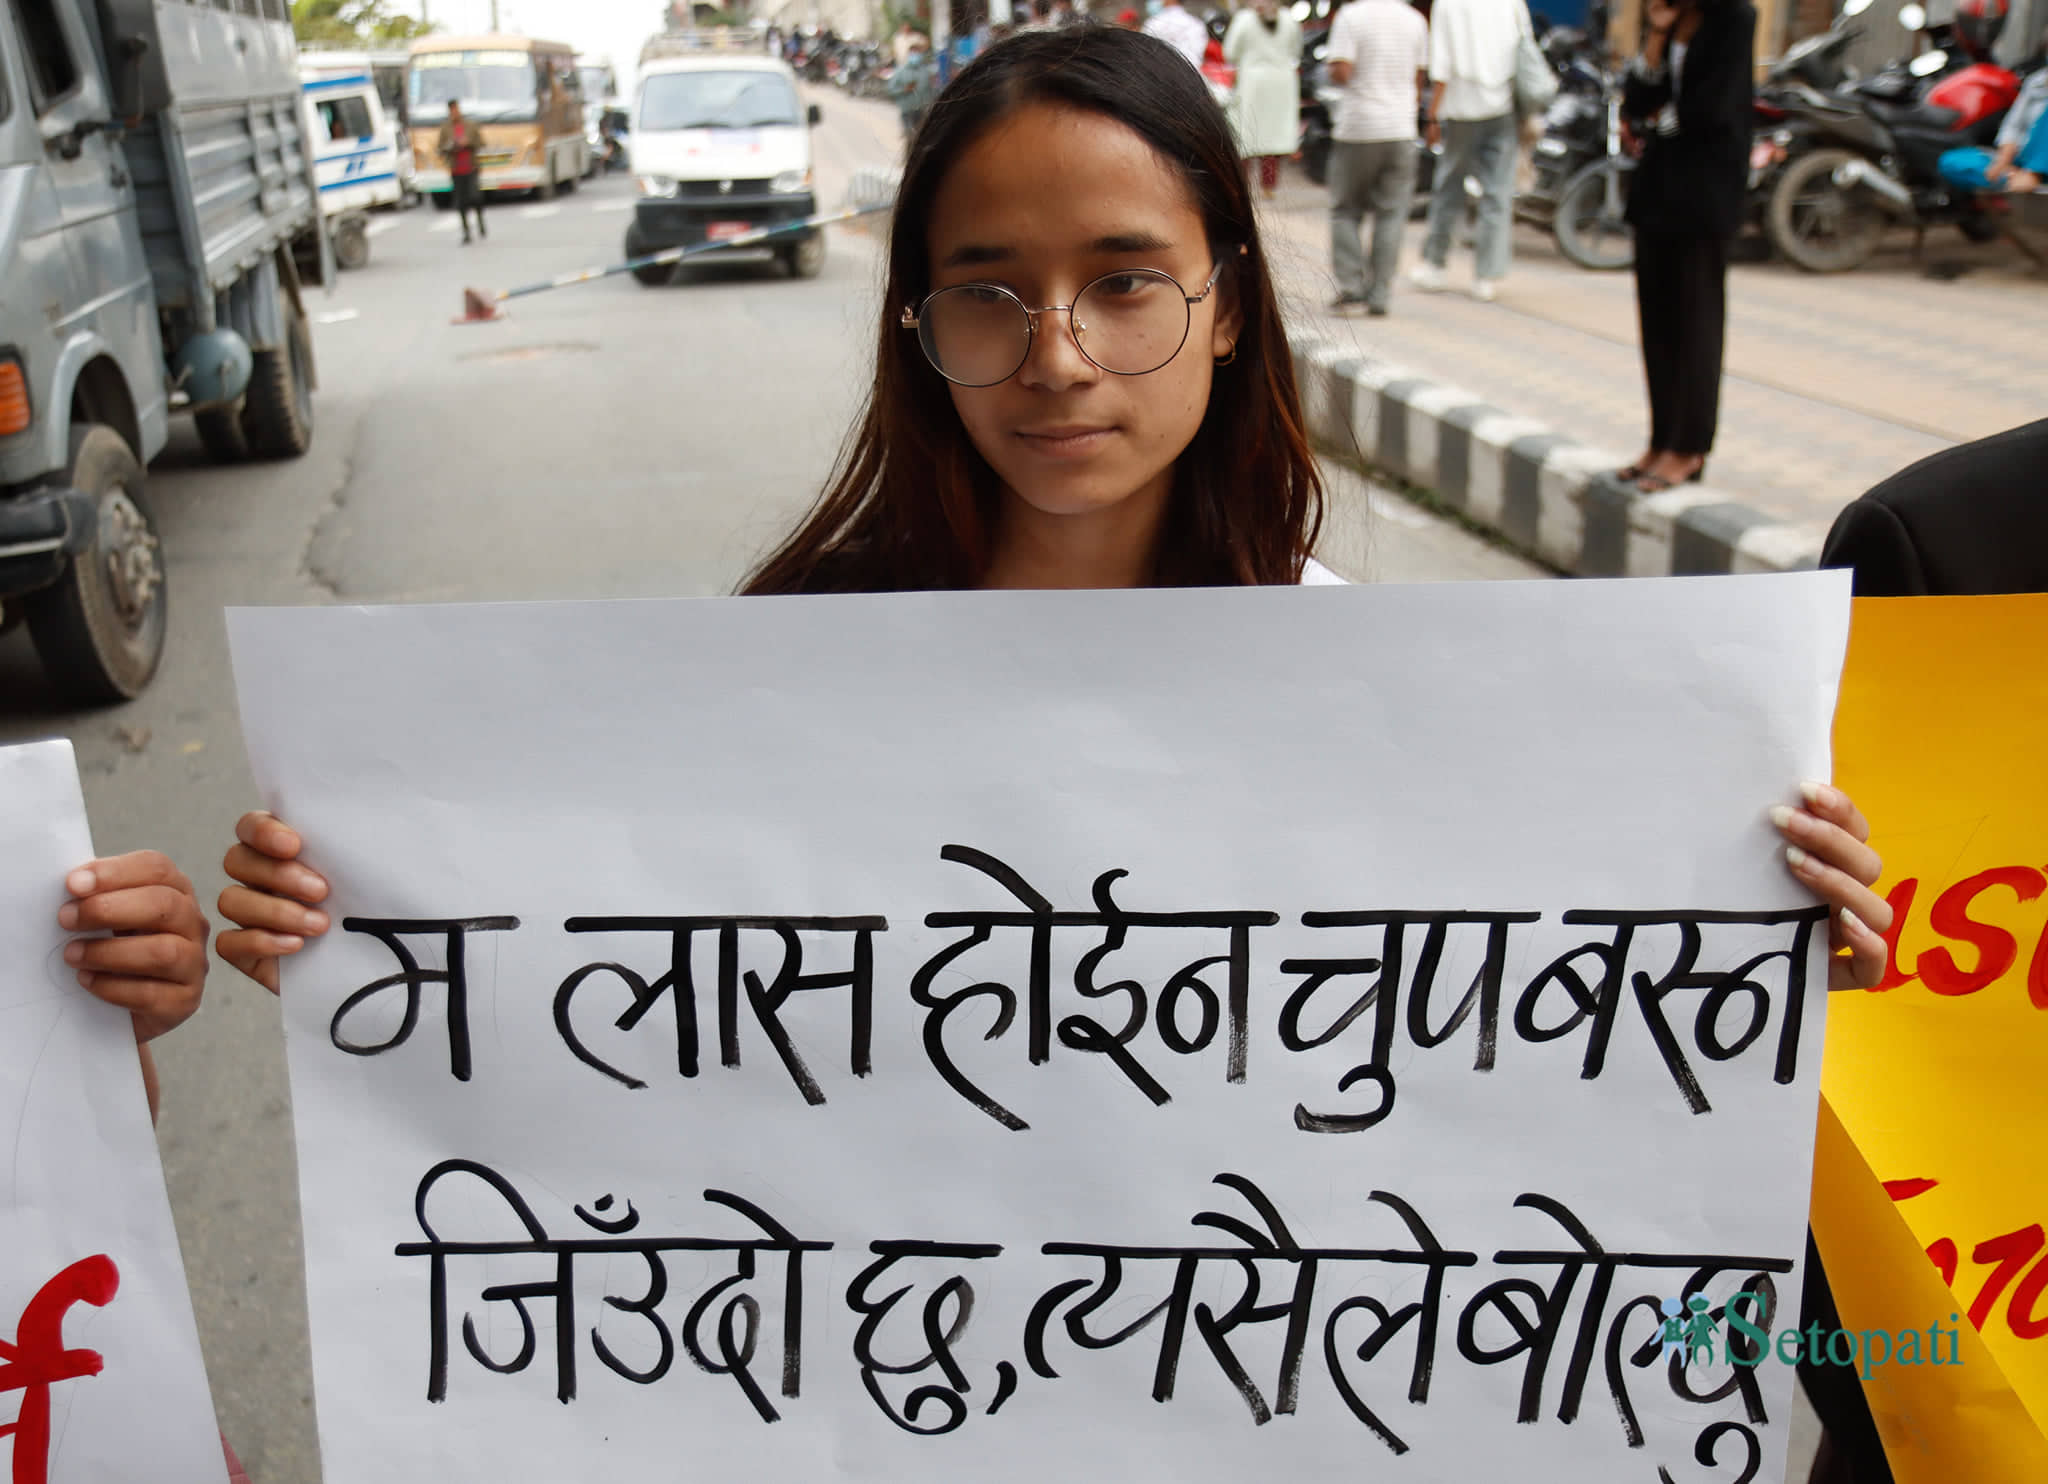 म लास होईन चुप बस्न
जिउँदो छु, त्यसैले बोल्छु
Setopati